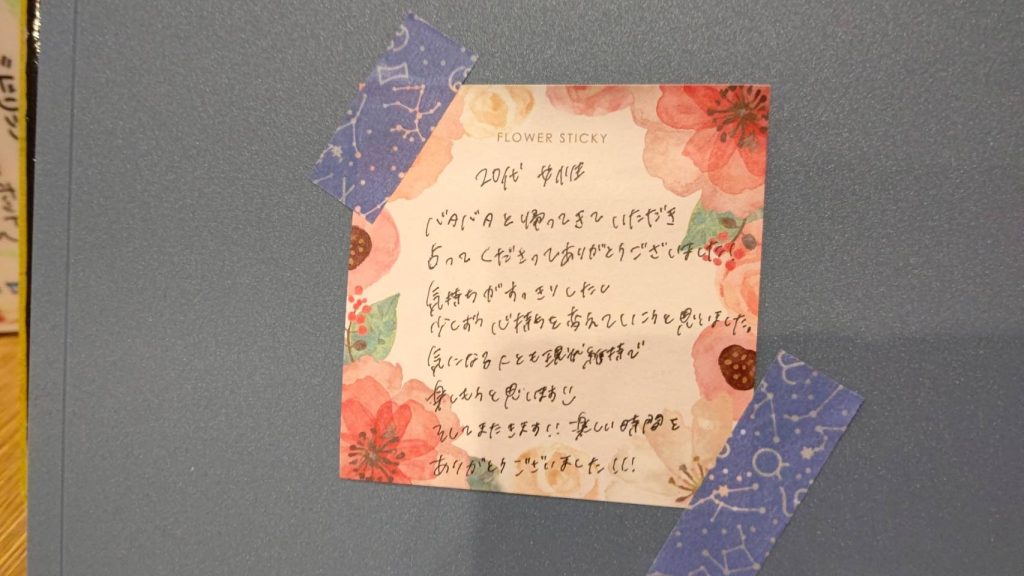 FLOWER STICKY
20代 女性
バババと帰ってきていただき
占ってくださってありがとうございました!
気持ちがすっきりしたし
少しずつ心持ちを変えていこうと思いました。
気になる人とも現状維持で
楽しもうと思います
そしてまたきます!! 楽しい時間を
ありがとうございました!!!